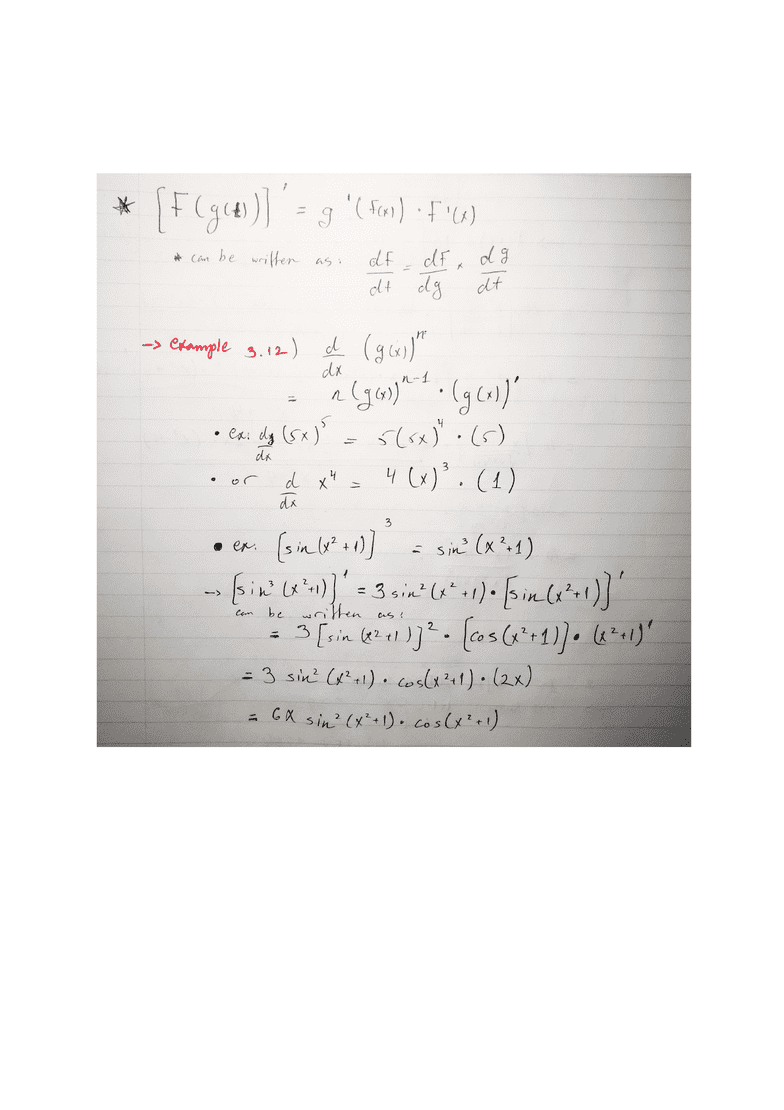 * [F(g(t))]' = g'(f(x)) · F'(x)
* can be written as: dF/dt = dF/dg × dg/dt
→ example 3.12) d/dx (g(x))ⁿ
= n(g(x))ⁿ⁻¹ · (g(x))'
• ex: dy/dx (5x)⁵ = 5(5x)⁴ · (5)
• or d/dx x⁴ = 4(x)³ · (1)
• ex. [sin(x²+1)]³ = sin³(x²+1)
→ [sin³(x²+1)]' = 3 sin²(x²+1) · [sin(x²+1)]'
can be written as:
= 3[sin(x²+1)]² · [cos(x²+1)] · (x²+1)'
= 3 sin²(x²+1) · cos(x²+1) · (2x)
= 6x sin²(x²+1) · cos(x²+1)